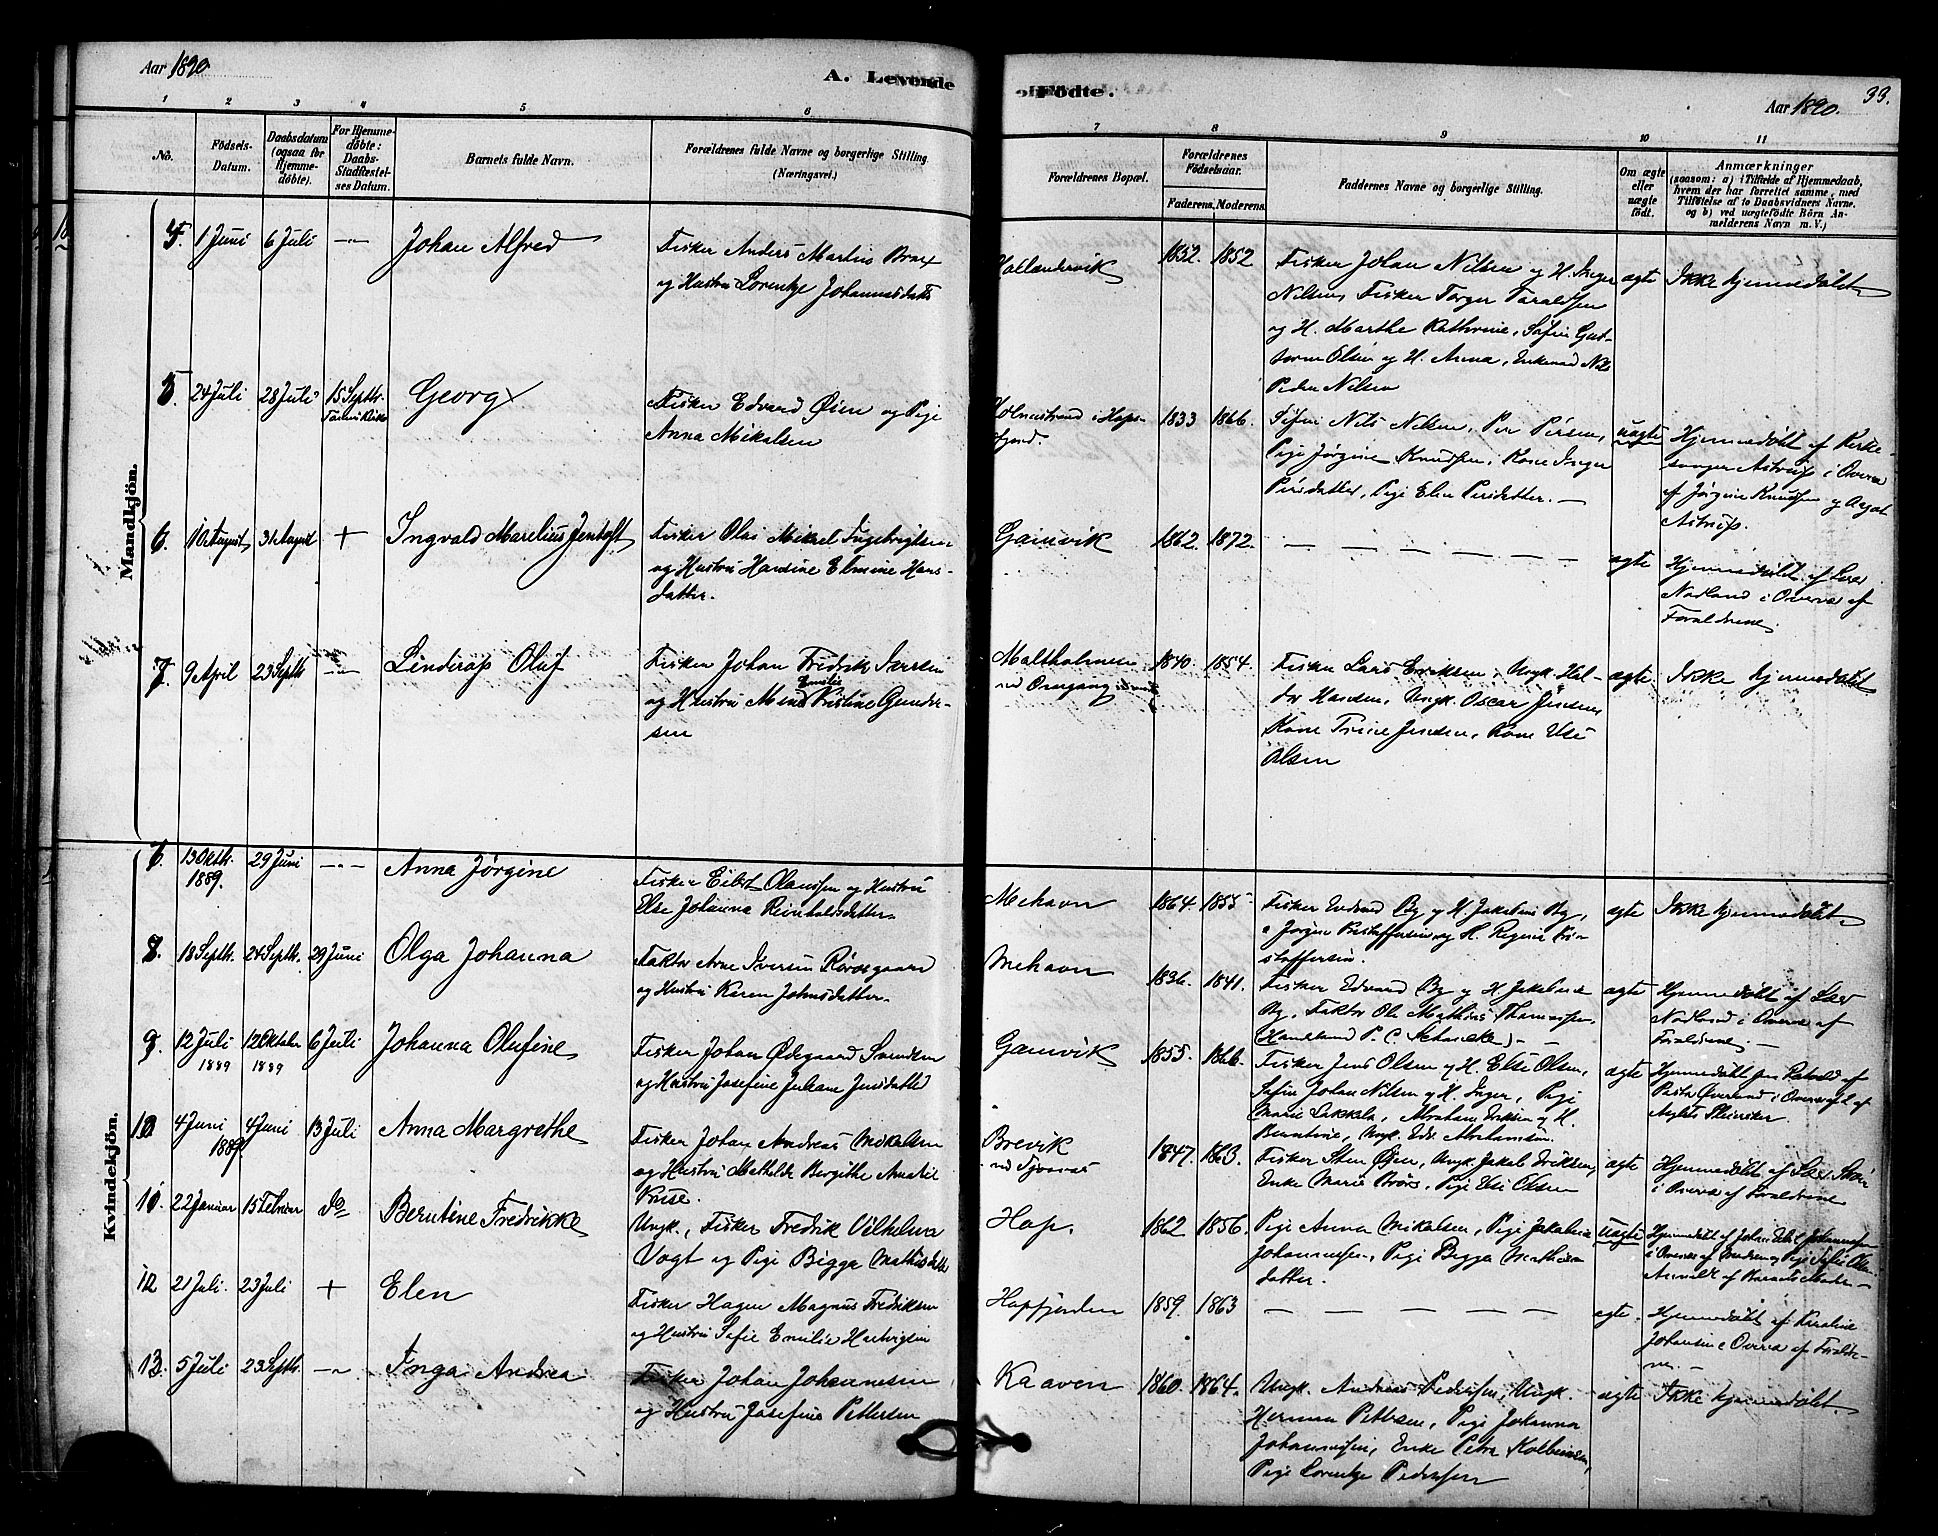 Aar 1890
A. Levende
Födte.
Aar 1890.
33.
1 2 3 4 5 6 7 8 9 10 11
No.
Födsels-
Datum.
Daabsdatum
(ogsaa for
Hjemme-
döbte).
For Hjemme-
döbte:
Daabs-
Stadfæstel-
ses Datum.
Barnets fulde Navn.
Forældrenes fulde Navne og borgerlige Stilling.
(Næringsvei.)
Forældrenes Bopæl.
Forældrenes
Födselsaar.
Faderens. Moderens.
Faddernes Navne og borgerlige Stilling.
Om ægte
eller
uægte
födt.
Anmærkninger
(saasom: a) i Tilfælde af Hjemmedaab,
hvem der har forrettet samme, med
Tilföielse af to Daabsvidners Navne.
og b) ved uægtefödte Börn An-
melderens Navn m. V.)
Mandkjön.
1 Juni 6 Juli Johan Alfred
Fisker Anders Martin
og Hustru Lorentze Johannesdatter
1852. 1852.
Fisker Johan Nilsen og H. Inger
Nilsen, Fisker Torger Taraldsen
og H. Marthe Kathrine,
Olsen og H. Anna, Nils
Peder Nilsen
ægte Ikke hjemmedøbt
5. 24 Juli 28 Juli 15 Septbr. Georg
Fisker Edvard Øien og Pige
Anna Mikalsen
1833 1866.
Nils Nilsen, Per Persen,
Pige Jørgine Knudsen, Kone Inger
Persdatter, Pige Elen Persdatter.
uægte Hjemmedøbt af Kirke-
sanger Astrup i Overvær
af Jørgine Knudsen og
Astrup.
6. 10 August 31 August + Ingvald Marelius Jentoft
Fisker Olai Mikael Ingebrigtsen
og Hustru Hansine Elmine Hans-
datter.
Gamvik 1862. 1872.
ægte Hjemmedøbt af Lærer
Nodland i Overvær af
Forældrene.
7. 9 April 23 Septb. Linderop Oluf
Fisker Johan Fredrik Iversen
og Hustru Mina Emilie Kristine Gunder-
sen
Maltholmen
1840. 1854.
Fisker Lars Eriksen, Ungk. Hel-
Hansen, Ungk. Oscar Jensen,
Kone Trine Jensen, Kone Elsi
Olsen
ægte. Ikke hjemmedøbt
Kvindekjön.
13 Oktb. 1889. 29 Juni Anna Jørgine
Fisker Eilert Olaussen og Hustru
Else Johanna Reinholdsdatter
Mehavn 1864. 1855
Fisker Edvard By og H. Jakobine By,
Jørgen Kristoffersen og H. Regine Kri-
stoffersen.
ægte Ikke hjemmedøbt
8. 18 Septb. 24 Septb. 29 Juni Olga Johanna
Faktor Arne Iversen Rørdsgaard
og Hustru Karen Johnsdatter
Mehavn 1836. 1841.
Fisker Edvard By og H. Jakobine
By, Faktor Ole Mathias Thomassen,
Handlend P. C.
ægte Hjemmedøbt af Lærer
Nodland i Overvær af
Forældrene.
9. 12 Juli 1889 12 Oktober 1889 6 Juli Johanna Olufine
Fisker Johan Ødegaard Svendsen
og Hustru Josefine Juliane Jensdatter
Gamvik 1855. 1866.
Fisker Jens Olsen og H. Else Olsen,
Johan Nilsen og H. Inger, Pige
Marie Lakkela, Abraham Eriksen og H.
Berntine, Ungk. Edv. Abrahamsen.
ægte Hjemmedøbt
10. 4 Juni 1889 4 Juni 13 Juli Anna Margrethe
Fisker Johan Andreas Mikalsen
og Hustru Mathilde Bergithe Amalie
Kruse.
Brevik 1847. 1863.
Fisker Sten Øien, Ungk. Jakob Eriksen,
Enke Marie Broks, Pige Elsi Olsen
ægte Hjemmedøbt af Lærer
i Overvær af Forældrene
22 Januar 15 Februar do Berntine Fredrikke
Ungk., Fisker Fredrik Vilhelm
Vogt og Pige Bigga Mathisdatter
Hop. 1862 1856.
Pige Anna Mikalsen, Pige Jakobine
Johannesen, Pige Bigga Mathis-
datter.
uægte
12 21 Juli. 23 Juli + Elen
Fisker Hagen Magnus Fredriksen
og Hustru Sofie Emilie Hartvigsen
Hopfjorden 1859. 1863
ægte. Hjemmedøbt af Karoline
Johansen i Overvær af Forældre-
ne.
13. 5 Juli 23 Septb. Inga Andrea
Fisker Johan Johannesen
og Hustru Josefine Pettersen
Kaaven 1860. 1864.
Ungk. Andreas Pedersen, Ungk.
Herman Pettersen, Pige Johanna
Johannesen, Enke Petra Kolbensen,
Pige Lorentze Pedersen
ægte Ikke hjemmedøbt.